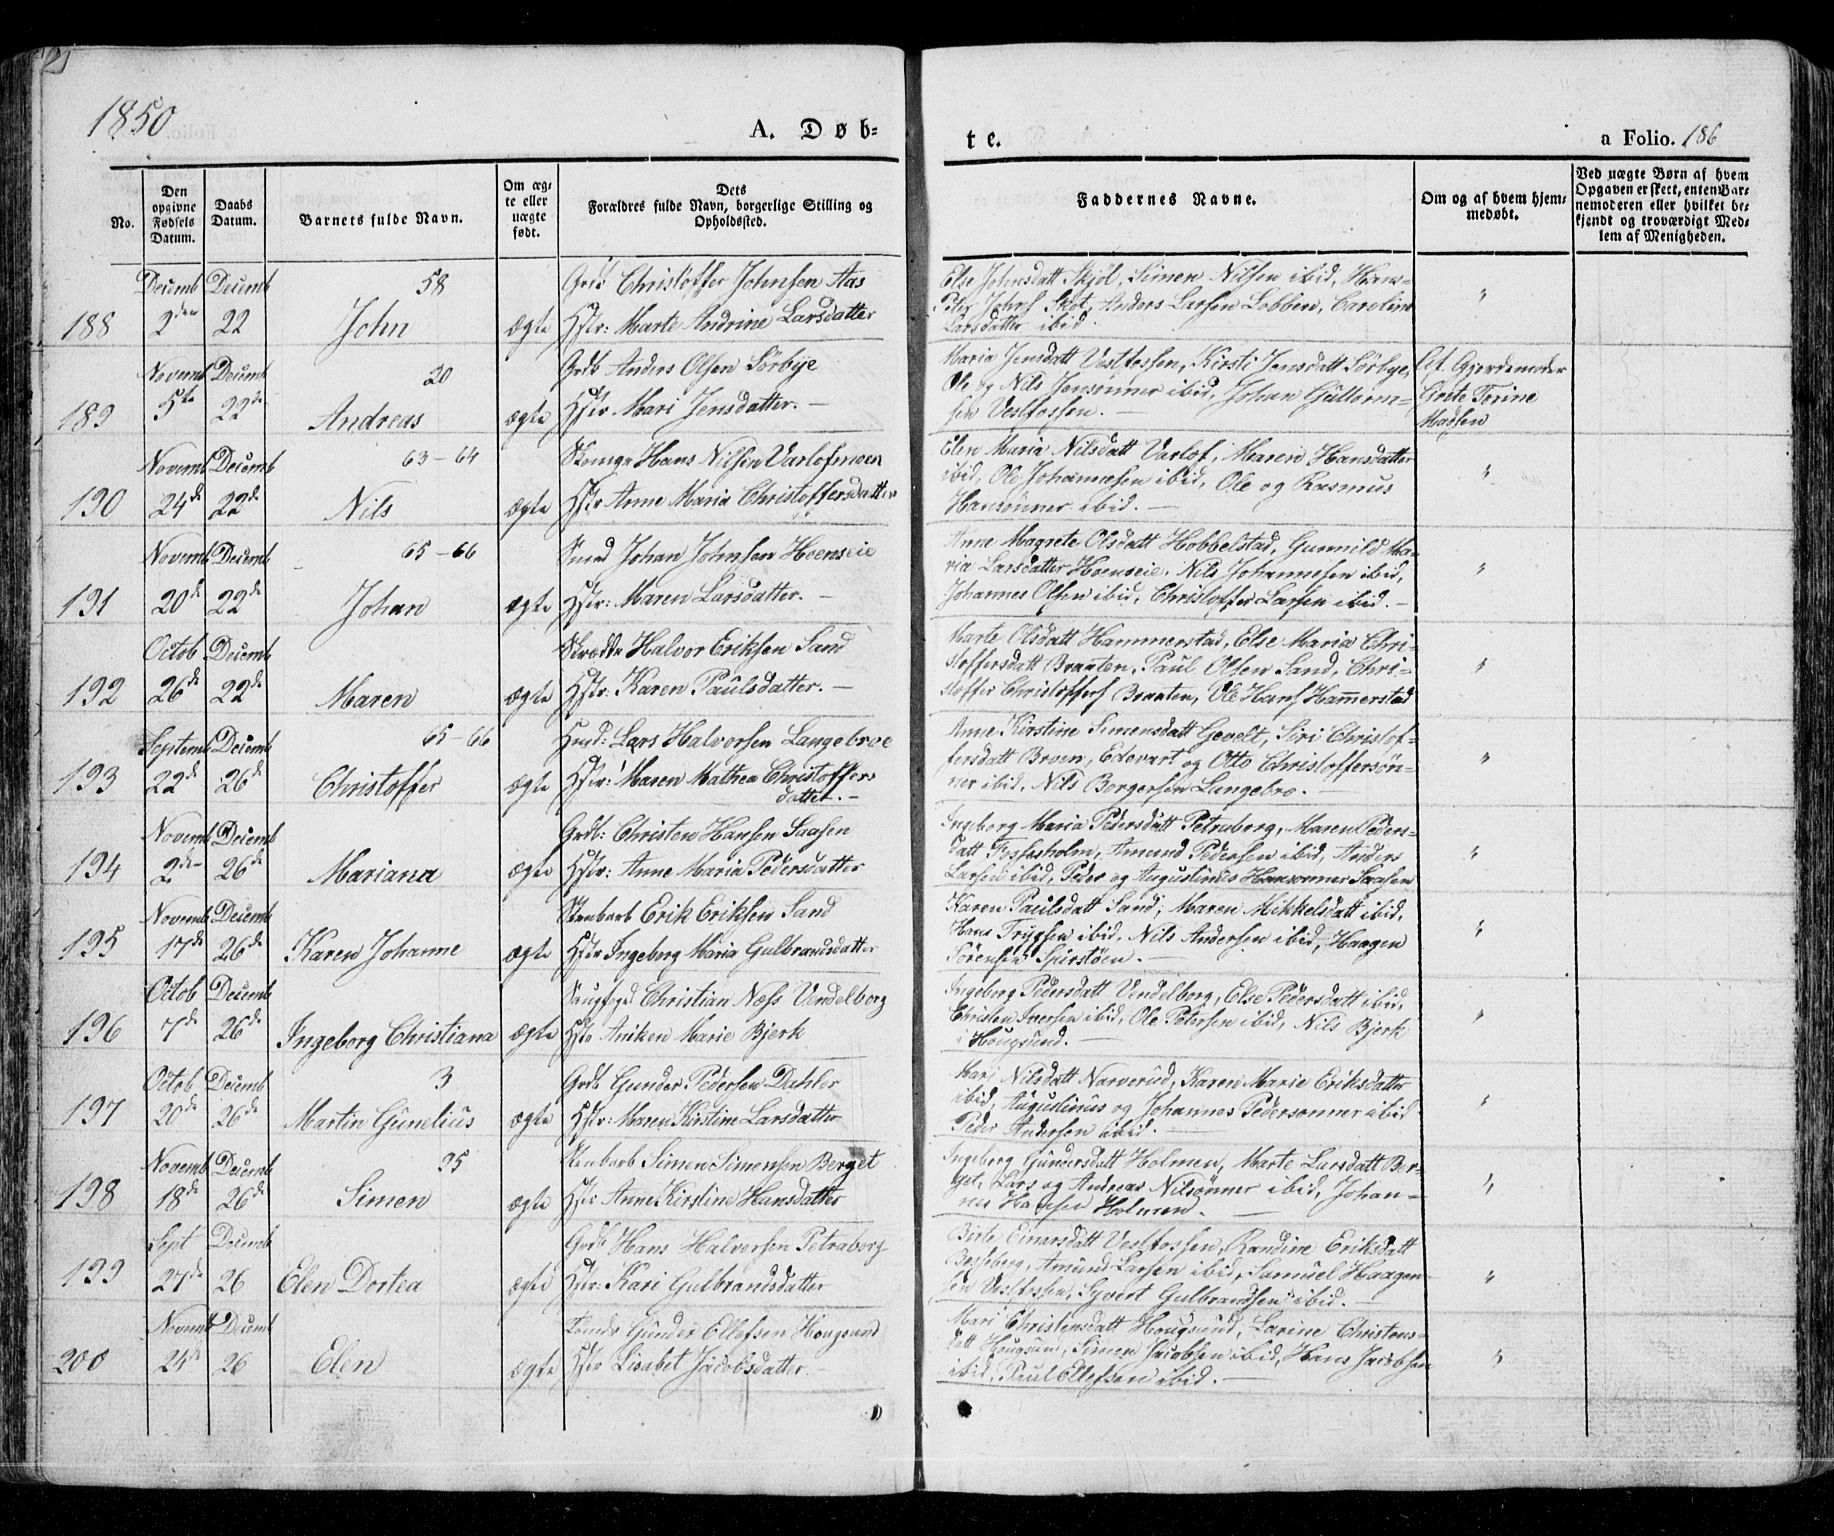 1850
A. Døb-
te.
a Folio. 186
No.
Den opgivne Fødsels Datum.
Daabs Datum.
Barnets fulde Navn.
Om ægte eller uægte født.
Dets Forældres fulde Navn, borgerlige Stilling og Opholdssted.
Faddernes Navne.
Om og af hvem hjemmedøbt.
Ved uægte Børn af hvem Opgaven er skeet, enten Barnemoderen eller hvilket bekjendt og troværdigt Medlem af Menigheden.
Decemb Decemb 58 Christoffer Johnsen Aas
188 2den 22 John ægte Hstr: Marte Andrine Larsdatter
Else Johnsdatt Skjöl, Simen Nilsen ibid, Hans
Peter Johns Skot, Anders Larsen Lobben, Caroline
Larsdatter ibid.
Novemb Decemb 20 Grdb Anders Olsen Sörbye
189 5te 22de Andreas ægte Hstr Mari Jensdatter. —
Maria Jensdatt Vestfossen, Kirsti Jensdatt Sörbye,
Ole og Nils Jensønner ibid, Johan Gullorm-
sen Vestfossen. —
Af Gjordemoder
Grete Torine
Madsen
Novemb Decemb 63-64 Hans Nilsen Varlofmoen
190 24de 22de Nils ægte Hstr Anne Maria Christoffersdatter
Elen Maria Nilsdatt Varlof, Maren Hansdatter
ibid, Ole Johannesen ibid, Ole og Rasmus
Hansønner ibid. —
Novemb Decemb 65-66 Smed Johan Johnsen Hoenseie
191 20de 22de Johan ægte Hstr: Maren Larsdatter. —
Anne Magrete Olsdatt Hobbelstad, Gunnild Ma-
ria Larsdatter Hoenseie, Nils Johannesen ibid,
Johannes Olsen ibid, Christoffer Larsen ibid. —
Octob Decemb Skrædder Halvor Eriksen Sand
192 26de 22de Maren ægte Hstr: Karen Paulsdatter. —
Marte Olsdatt Hammerstad, Else Maria Chri-
stoffersdatt Braaten, Paul Olsen Sand, Chri-
stoffer Christoffers Braaten, Ole Hans Hammerstad
Septemb Decemb 65-66 Huud: Lars Halvorsen Langebroe
193 22de 26de Christoffer ægte Hstr: Maren Mathea Christoffers
datter. —
Anne Kirstine Simensdatt Gevelt, Siri Christof-
fersdatt Broen, Edevart og Otto Christoffersøn-
ner ibid, Nils Borgersen Langebro. —
Novemb Decemb Grdb: Christen Hansen Saasen
194 2den 26de Mariana ægte Hstr: Anne Maria Pedersdatter
Ingeborg Maria Pedersdatt Petraborg, Maren Peders-
datt Fossesholm, Amund Pedersen ibid, Anders
Larsen ibid, Peder og Augustinus Hansønner Saasen
Novemb Decemb Stenbarb Erik Eriksen Sand
195 17de 26de Karen Johanne ægte Hstr Ingeborg Maria Gulbrandsdatter
Karen Paulsdatt Sand, Maren Mikkelsdatt ibid,
Hans Trygsen ibid, Nils Andersen ibid, Haagen
Sörensen Spirstöen. —
Octob Decemb Christian Næss Vendelborg
196 7de 26de Ingeborg Christiana ægte Hstr Aniken Marie Bjerk
Ingeborg Pedersdatt Vendelborg, Else Pedersdatt ibid,
Christen Iversen ibid, Ole Petersen ibid, Nils Bjerk
i Hougsund. —
Octob Decemb 3 Grdb Gunder Pedersen Dahler
197 20de 26de Martin Gunelius ægte Hstr: Maren Kirstine Larsdatter
Mari Nilsdatt Narverud, Karen Marie Eriksdatter
ibid, Augustinus og Johannes Pedersønner ibid
Peder Andersen ibid. —
Novemb Decemb 35 Stenbarb Simen Simensen Berget
198 18de 26de Simen ægte Hstr Anne Kirstine Hansdatter
Ingeborg Gundersdatt Holmen, Marte Larsdatt Ber-
get, Lars og Andreas Nilsønner ibid, Johan-
nes Hansen Holmen. —
Sept Decemb Grdb Hans Halvorsen Petraborg
199 27de 26 Elen Dortea ægte Hstr: Kari Gulbrandsdatter
Birte Einarsdatt Vestfossen, Randine Eriksdatt
Besseberg, Amund Larsen ibid, Samuel Haagen-
sen Vestfossen, Syvert Gulbrandsen ibid. —
Novemb Decemb Gunder Ellefsen Hougsund
200 24de 26 Elen ægte Hstr Lisabet Jacobsdatter
Mari Christensdatt Hougsund, Larine Christens-
datt Hougsund, Simen Jacobsen ibid, Hans Jacobsen
ibid, Paul Ellefsen ibid. —